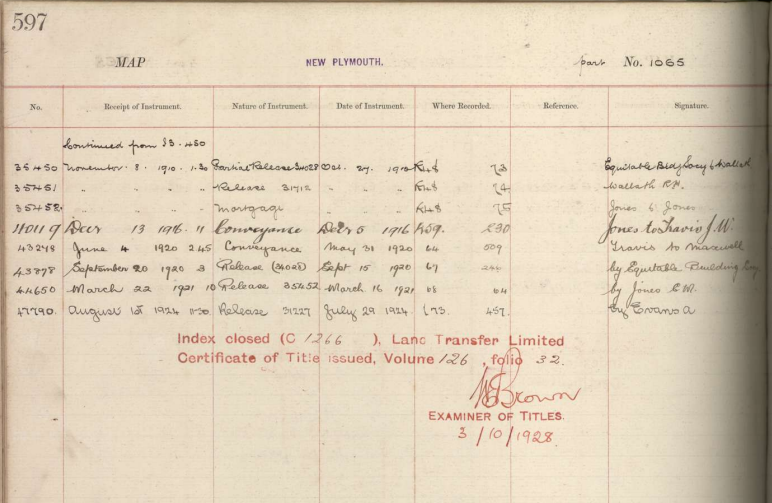 597
MAP NEW PLYMOUTH. part No. 1065
No. Receipt of Instrument. Nature of Instrument. Date of Instrument. Where Recorded. Reference. Signature.
Continued from I3. 450
35450 November 8. 1910. 1.30 Partial Release 34028 Oct. 27. 1910 K48 73 Equitable Bldg Socy to Wallath
35451 " " " " Release 31712 " " " K48 74 Wallath R.H.
35452. " " " " Mortgage " " " K48 75 Jones to Jones
40119 Decr 13 1916. 11 Conveyance Decr 5 1916 K59. 230 Jones to Travis J.W.
43248 June 4 1920 2.45 Conveyance May 31 1920 64 509 Travis to Maxwell
43878 September 20 1920 3 Release (34028) Sept 15 1920 67 244 by Equitable Building Socy
44650 March 22 1921 10 Release 35452 March 16 1921 68 64 by Jones E.W.
47790. August 1st 1924 11.30 Release 31227 July 29 1924. L73. 457. by Evans A
Index closed (C 1266 ), Land Transfer Limited
Certificate of Title issued, Volume 126, folio 32.
Brown
EXAMINER OF TITLES.
3/10/1928